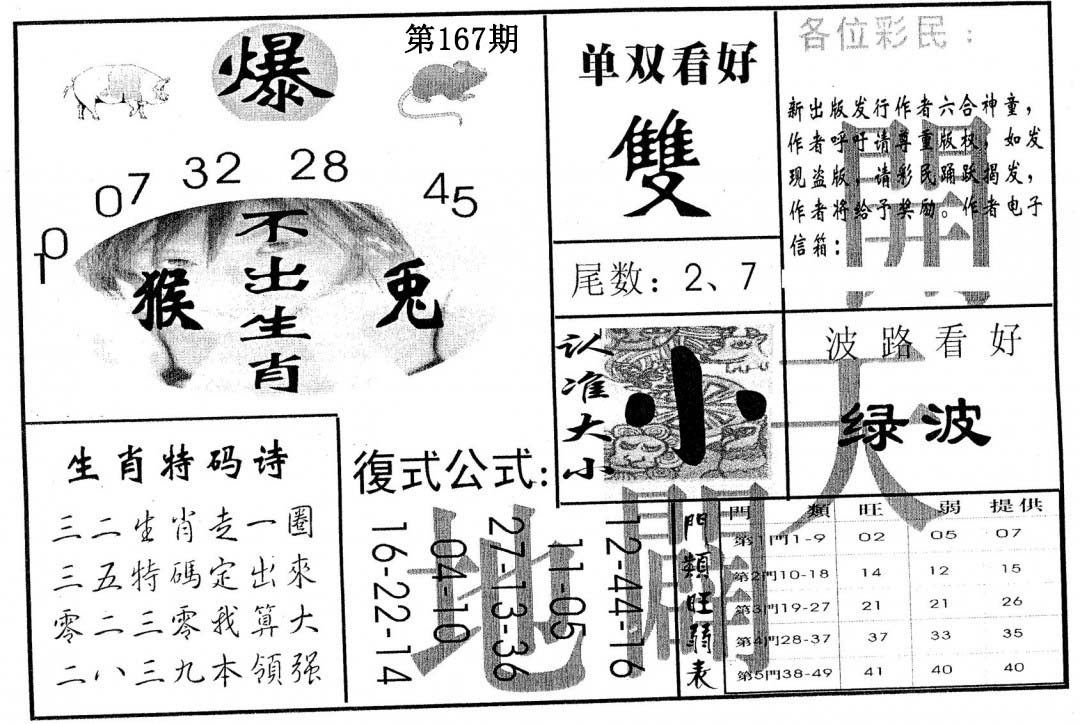 第167期
爆
10 07 32 28 45
不出生肖
猴
兎
单双看好
雙
尾数：2、7
认准大小
小
各位彩民：
新出版发行作者六合神童，
作者呼吁请尊重版权，如发
现盗版，请彩民踊跃揭发，
作者将给予奖励。作者电子
信箱：
波路看好
绿波
天開
地闢
生肖特码诗
三二生肖走一圈
三五特碼定出來
零二三零我算大
二八三九本領强
復式公式：
16-22-14
04-10
27-13-36
11-05
12-44-16
門類旺弱表
門類 旺 弱 提供
第1門1-9 02 05 07
第2門10-18 14 12 15
第3門19-27 21 21 26
第4門28-37 37 33 35
第5門38-49 41 40 40